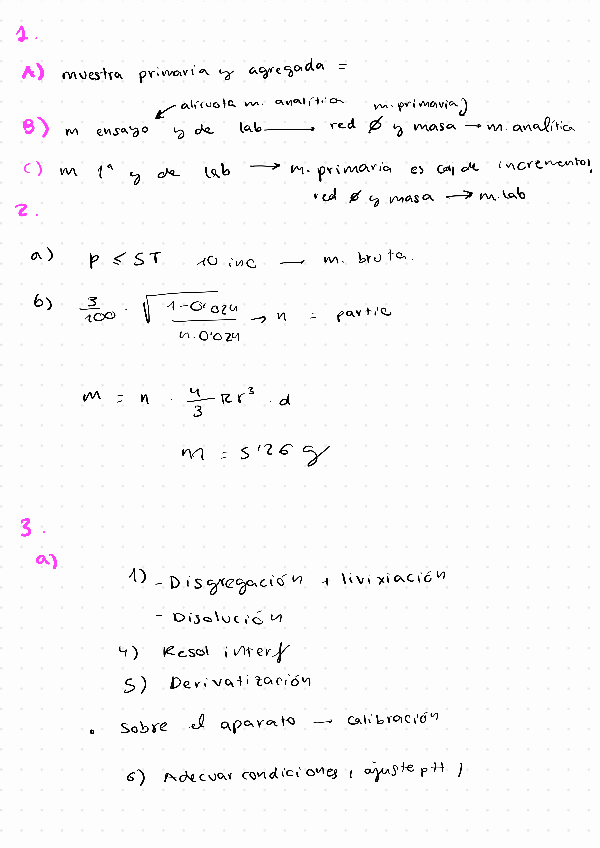 1.
A) muestra primaria y agregada =
alícuota m. analítica m. primaria)
B) m ensayo y de lab → red ø y masa → m. analítica
C) m 1ª y de lab → m. primaria es de incremento,
red ø y masa → m. lab
2.
a) P ≤ ST 10 inc → m. bruta.
b) 3/100 · √(1-0'024 / n·0'024) → n = partic
m = n · 4/3 π r³ · d
m = 5'26 g
3.
a)
1) - Disgregación + livixiación
- Disolución
4) Resol interf
5) Derivatización
• Sobre el aparato → calibración
6) Adecuar condiciones, ajuste pH